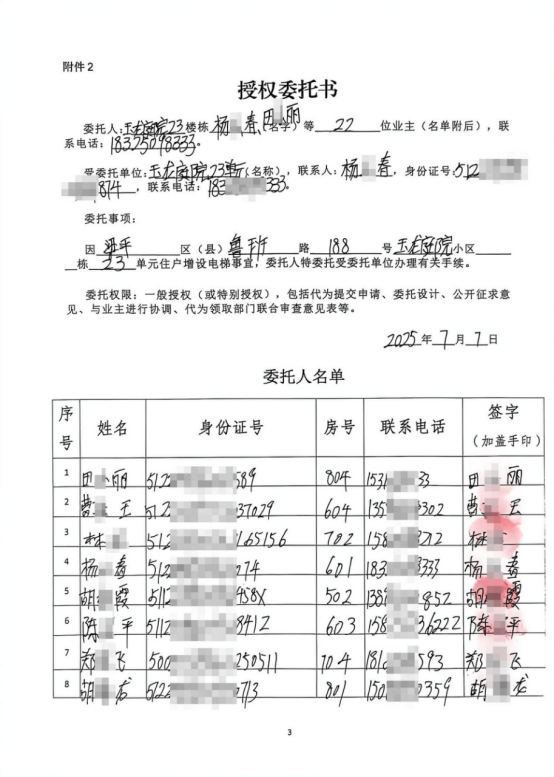 附件2
授权委托书
委托人:玉龙庭院23楼栋杨 春田 丽(名字)等22位业主(名单附后),联
系电话:18325098333。
受委托单位:玉龙庭院23单元(名称),联系人:杨 春,身份证号:512
874,联系电话:183 333。
委托事项:
因梁平区(县) 路188号玉龙庭院小区
栋23单元住户增设电梯事宜,委托人特委托受委托单位办理有关手续。
委托权限:一般授权(或特别授权),包括代为提交申请、委托设计、公开征求意
见、与业主进行协调、代为领取部门联合审查意见表等。
2025年7月7日
委托人名单
序号 姓名 身份证号 房号 联系电话 签字(加盖手印)
1 田 丽 5122 589 804 1531 33 田 丽
2 曹 王 512 37029 604 135 302 曹 王
3 林 512 165156 702 158 212 林
4 杨 春 512 074 601 183 333 杨 春
5 胡 霞 5112 458X 502 138 852 胡 霞
6 陈 平 5112 8412 603 158 36222 陈 平
7 郑 飞 500 250511 704 181 593 郑 飞
8 胡 龙 5122 0713 801 150 0359 胡 龙
3